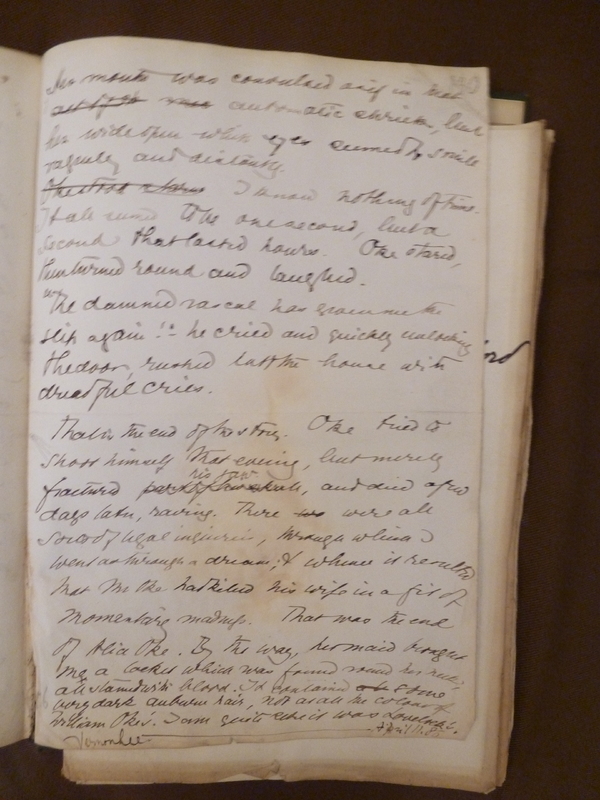 her mouth was convulsed as if in that
automatic shriek, but
her wide open white eyes seemed to smile
vaguely and distantly.
Oke stood I know nothing of time.
It all seemed to be one second, but a
second that lasted hours. Oke stared,
then turned round and laughed.
"The damned rascal has given me the
slip again!" he cried and quickly unlocking
the door, rushed out of the house with
dreadful cries.
That is the end of the story. Oke tried to
shoot himself that evening, but merely
his jaw
fractured and died a few
days later, raving. There were all
sorts of legal inquiries, through which I
went as through a dream; & whence it resulted
that Mr Oke had killed his wife in a fit of
momentary madness. That was the end
of Alice Oke. By the way, her maid brought
me a locket which was found round her neck,
all stained with blood. It contained some
very dark auburn hair, not at all the colour of
William Oke's. I am quite sure it was Lovelock's.
Vernon Lee